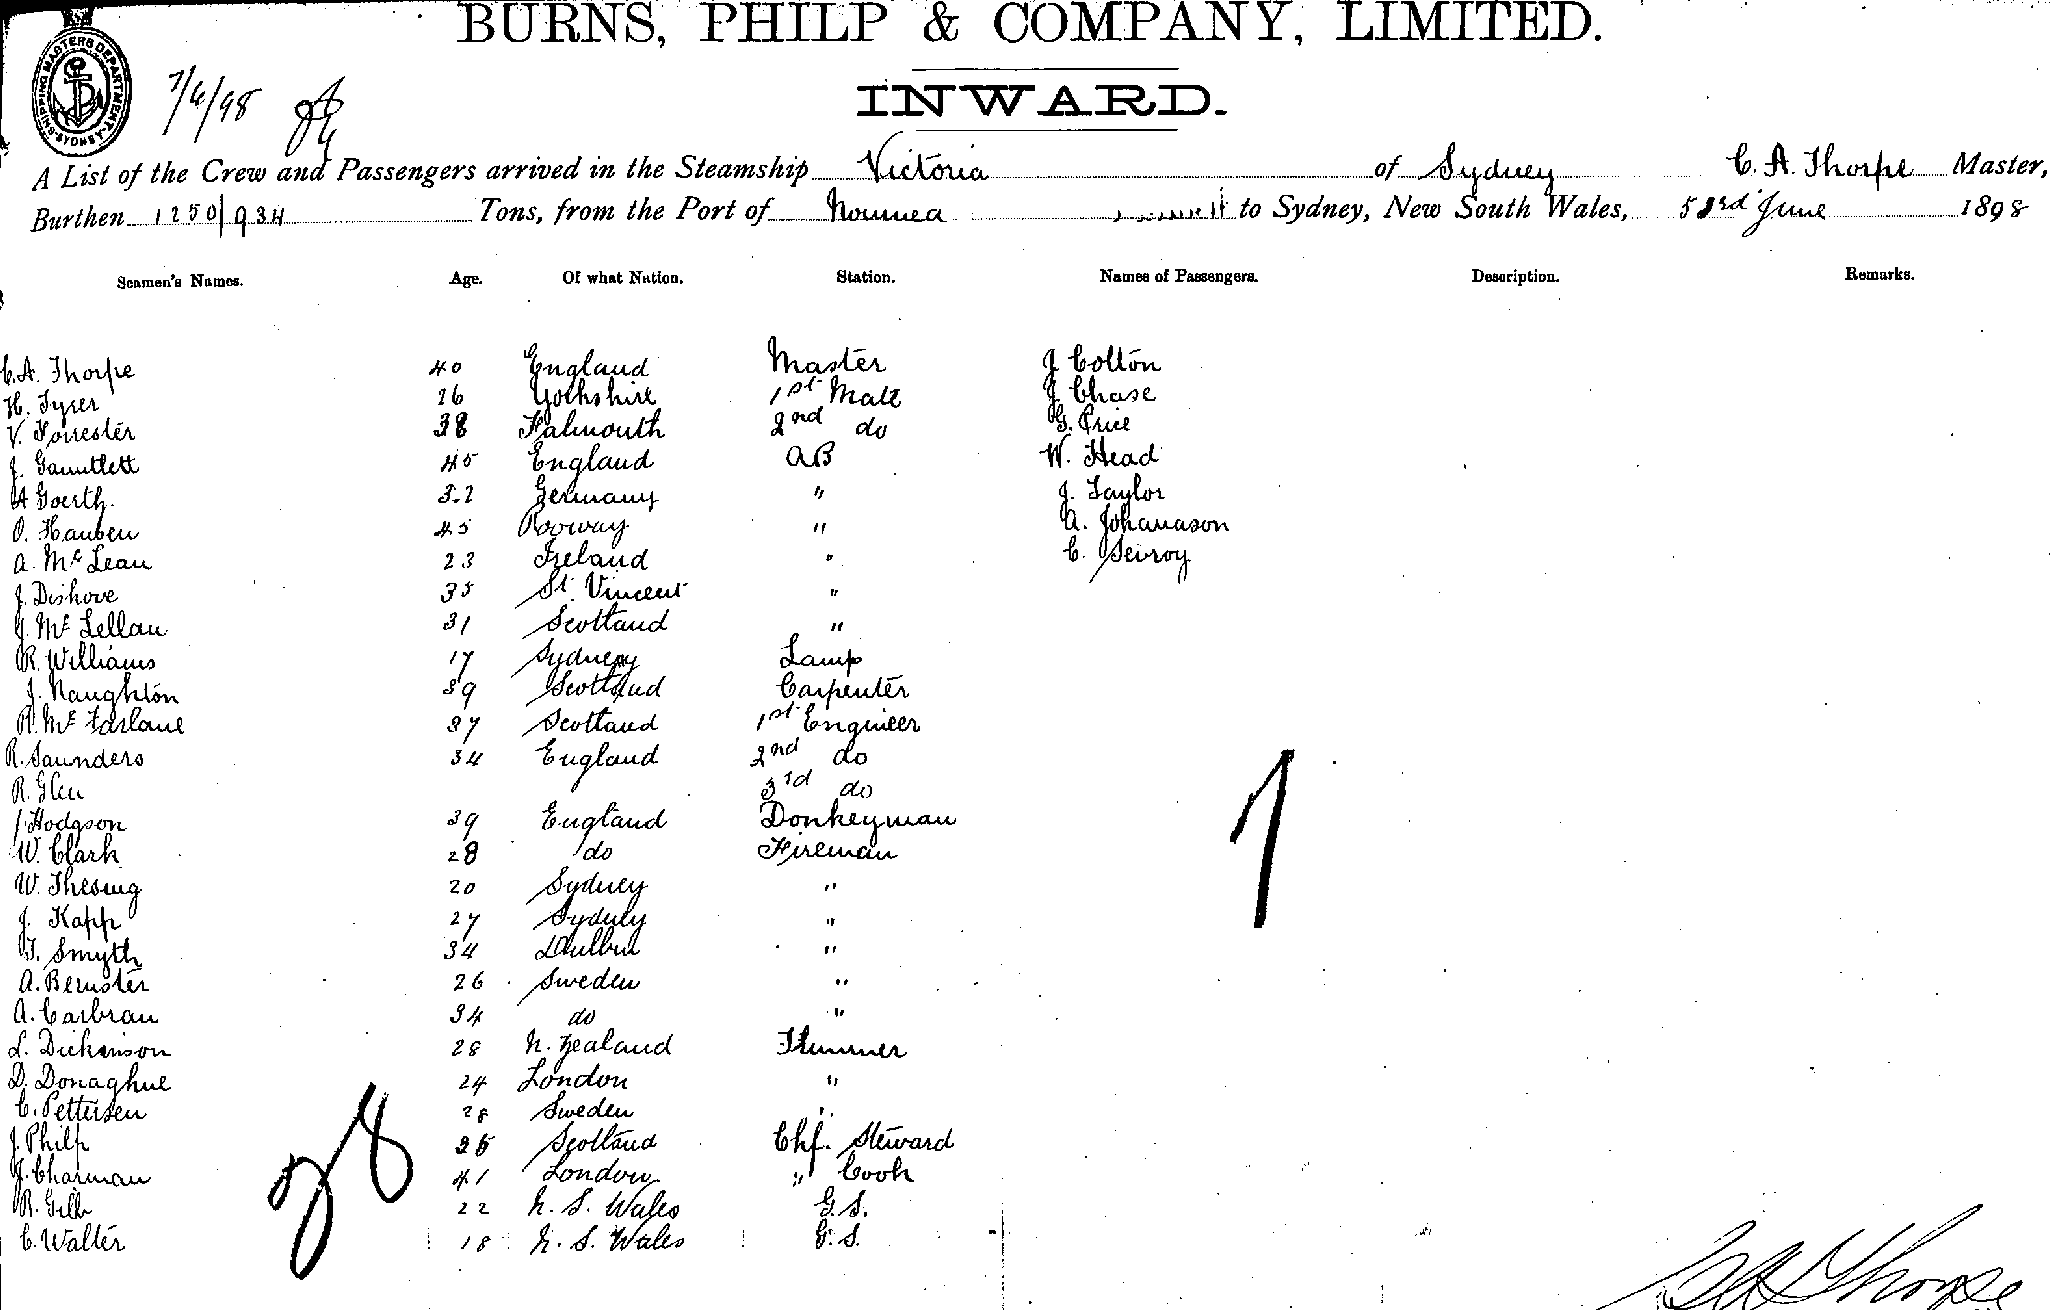 BURNS, PHILP & COMPANY, LIMITED.
SHIPPING MASTERS DEPARTMENT SYDNEY
7/6/98
INWARD.
A List of the Crew and Passengers arrived in the Steamship Victoria of Sydney C. A. Thorpe Master,
Burthen 1250/934 Tons, from the Port of Noumea to Sydney, New South Wales, June 1898
Seamen's Names. Age. Of what Nation. Station. Names of Passengers. Description. Remarks.
C.A. Thorpe 40 England Master J Colton
H. Tyrer 26 Yorkshire 1st Mate J Chase
V. Forrester 38 Falmouth 2nd do G. Price
J. Gauntlett 45 England AB W. Head
A Goerth. 32 Germany " J. Taylor
O. Hausen 45 Norway " A. Johanason
A. McLean 23 Ireland " C.
J. Dishove 35 St. Vincent "
J. McLellan 31 Scotland "
R. Williams 17 Sydney Lamp
J. Naughton 39 Scotland Carpenter
R. McFarlane 37 Scotland 1st Engineer
R. Saunders 34 England 2nd do
R. Glen 3rd do
J Hodgson 39 England Donkeyman
W. Clark 28 do Fireman
W. Thesing 20 Sydney "
J. Kapp 27 Sydney "
T. Smyth 34 Dublin "
A. Bernster 26 Sweden "
A. Carbran 34 do "
L. Dickinson 28 N. Zealand Trimmer
D. Donaghue 24 London "
C. Pettersen 28 Sweden "
J. Philp 36 Scotland Chf. Steward
J. Charman 41 London " Cook
R. Gill 22 N. S. Wales G.S.
C. Walter 18 N. S. Wales G.S.
7
28
CA Thorpe